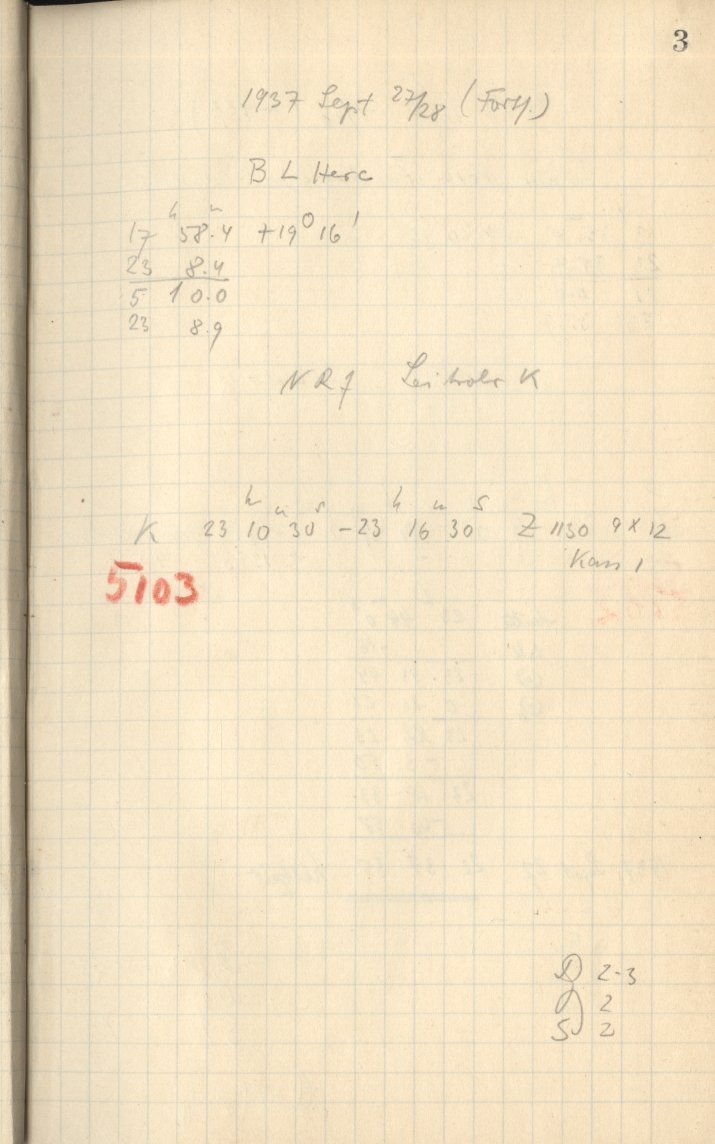 3
1937 Sept 27/28 (Forts.)
B L Herc
17 h 58.4 m +19° 16'
23 8.4
5 10.0
23 8.9
Leitrohr K
K 23 h 10 m 30 s - 23 h 16 m 30 s Z 1130 9 x 12
Kass 1
5103
D 2-3
2
S 2